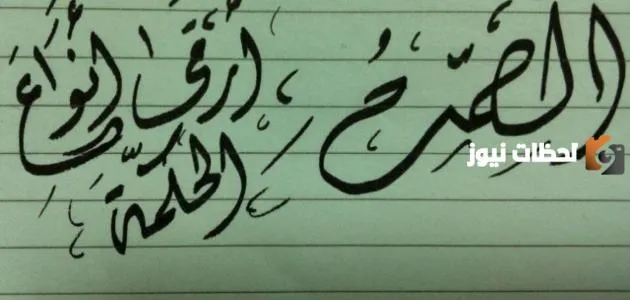 الصّمتُ أرقى أنواع
الحكمة
لحظات نيوز